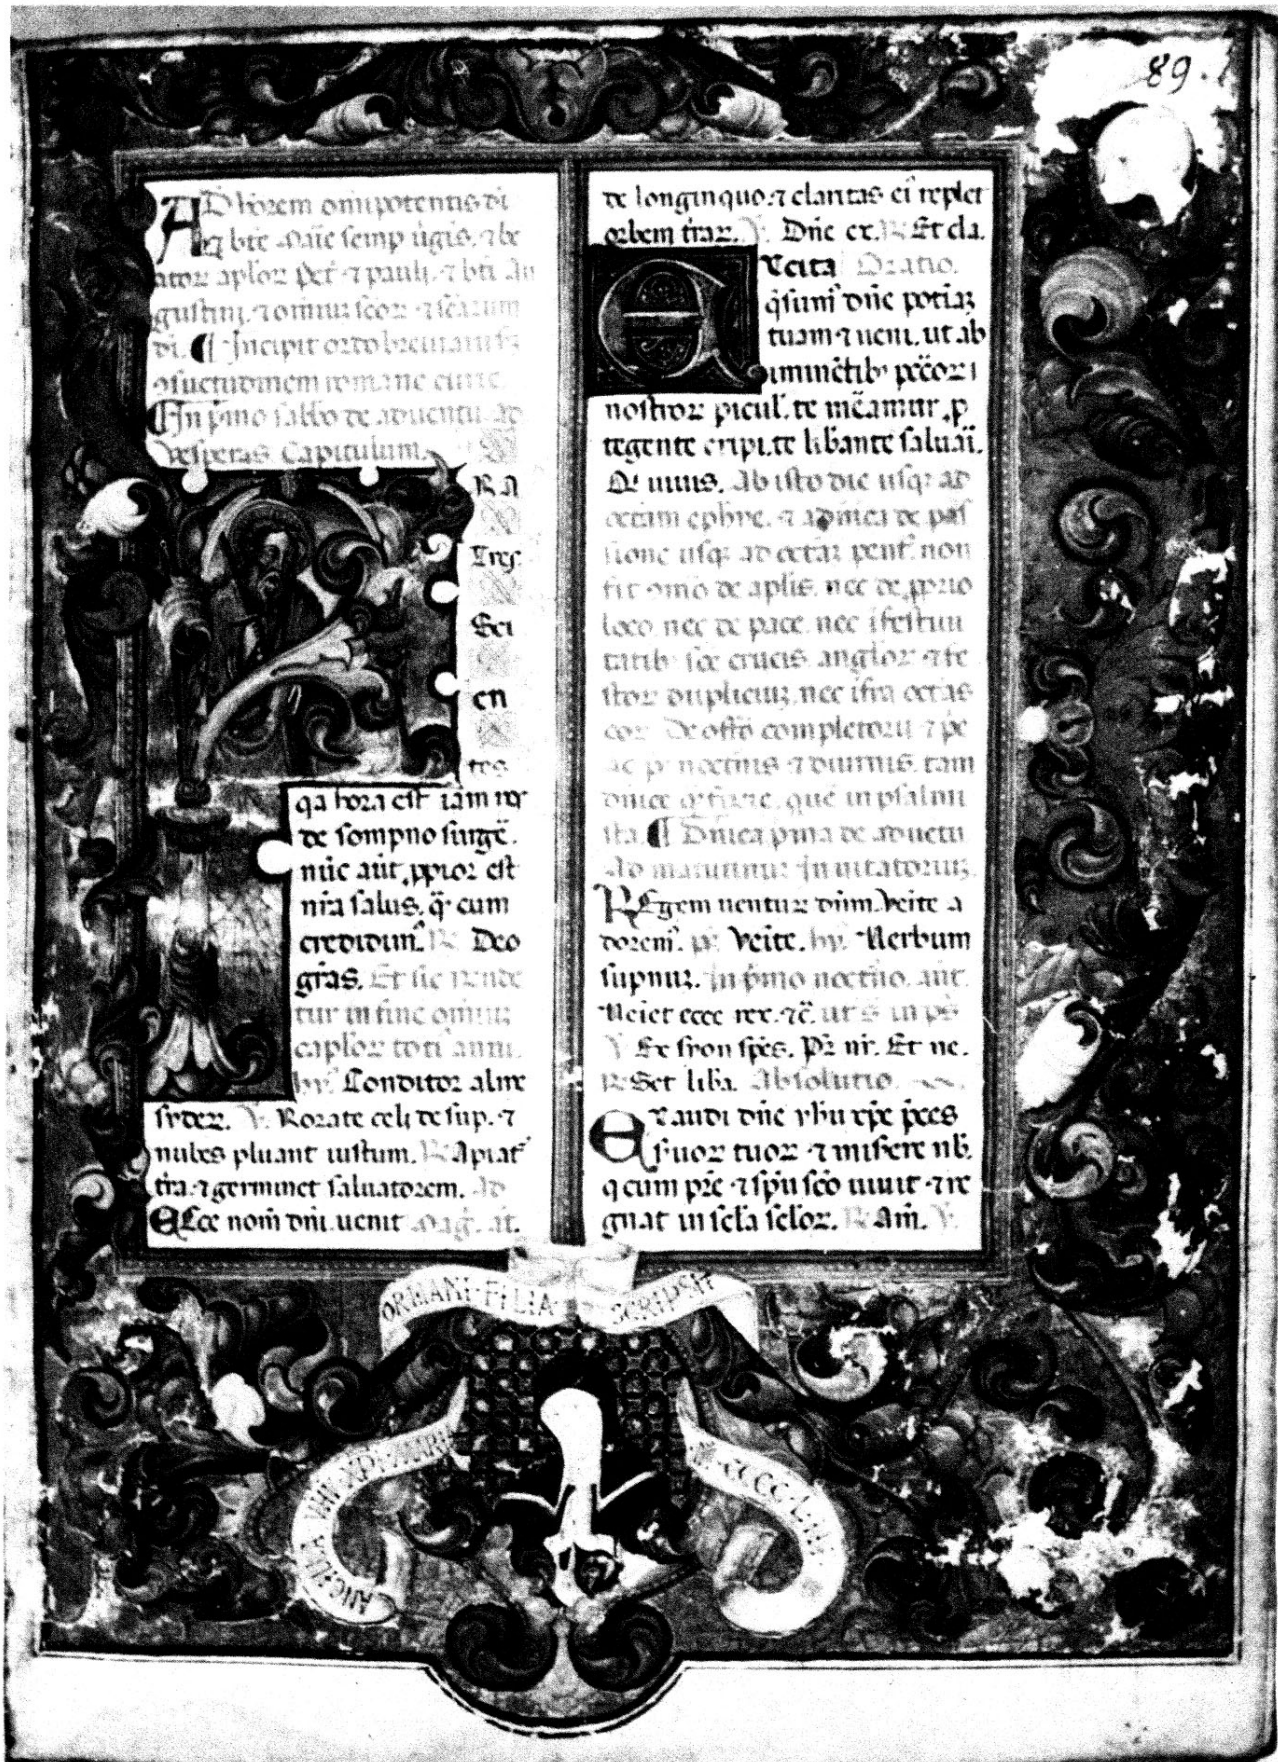 89
AD honorem omnipotentis di
btē Marie semp ūgis. ⁊ be
ator aploꝝ Pet ⁊ pauli. ⁊ bti Au
gustini. ⁊ omniuꝫ scoꝝ ⁊ scarum
di. ¶ Incipit ordo breuiarii
ꝯsuetudinem romane curie.
In pmo sabbo de aduentu ad
vesperas. Capitulum.
FRA
tres
Sci
en
tes
qa hora est iam nos
de sompno surgē.
nūc aūt ꝓpior est
nr̄a salus. q̄ cum
credidim̄. ℞ Deo
gr̄as. Et sic rn̄de
tur in fine omniuꝫ
caploꝝ toti anni.
hy. Conditor alme
syderꝝ. ℣. Rorate celi desup. ⁊
nubes pluant iustum. ℞ Apiat᷑
tr̄a ⁊ germinet saluatorem. Ad
Ecce nom̄ dn̄i uenit Mag̃. an̄.
de longinquo. ⁊ claritas ei᷒ replet
orbem tr̄aꝝ. ℣. Dn̄e ex. ℞ Et cla.
Excita Oratio.
q̄sum᷒ dn̄e potn̄aꝫ
tuam ⁊ ueni. ut ab
iminētib᷒ pcc̄oꝝ
nostroꝝ picul. te mēamur ꝓ
tegente eripi. te libante saluaī.
Q᷑ uiuis. Ab isto die usqꝫ ad
octam ephye. ⁊ a dnica de pas
sione usqꝫ ad octaꝫ pent. non
fit ꝯmō de aplis. nec de ꝓprio
loco. nec de pace. nec ī festiui
tatib᷒ sce crucis. angloꝝ ⁊ fe
stoꝝ dupliciuꝫ. nec īfra octas
eoꝝ. De offō completorii ⁊ pc
ac p᷒ nocturnis ⁊ diurnis. tam
dnice q̄ ferie. que in psalmi
sta. ¶ Dn̄ica pma de aduētu
Ad matutinuꝫ Inuitatoriuꝫ.
REgem uenturꝫ dn̄m. Veīte a
dorem᷒. ps. Veīte. hy. Verbum
supnuꝫ. In pmo nocт̄no. an̄.
Veiet ecce rex. ⁊c̄. ut s in ps
℣ Ex syon spēs. Pr̄ nr̄. Et ne.
℞ Set liba. Absolutio.
Exaudi dn̄e yhu xpe pces
suoꝝ tuoꝝ ⁊ miserere nb.
q cum pr̄e ⁊ sp̄u scō uiuit ⁊ re
gnat in scl̄a scl̄oꝝ. ℞ Am̄. ℣.
ORMANI·FILIA SCRIPSIT